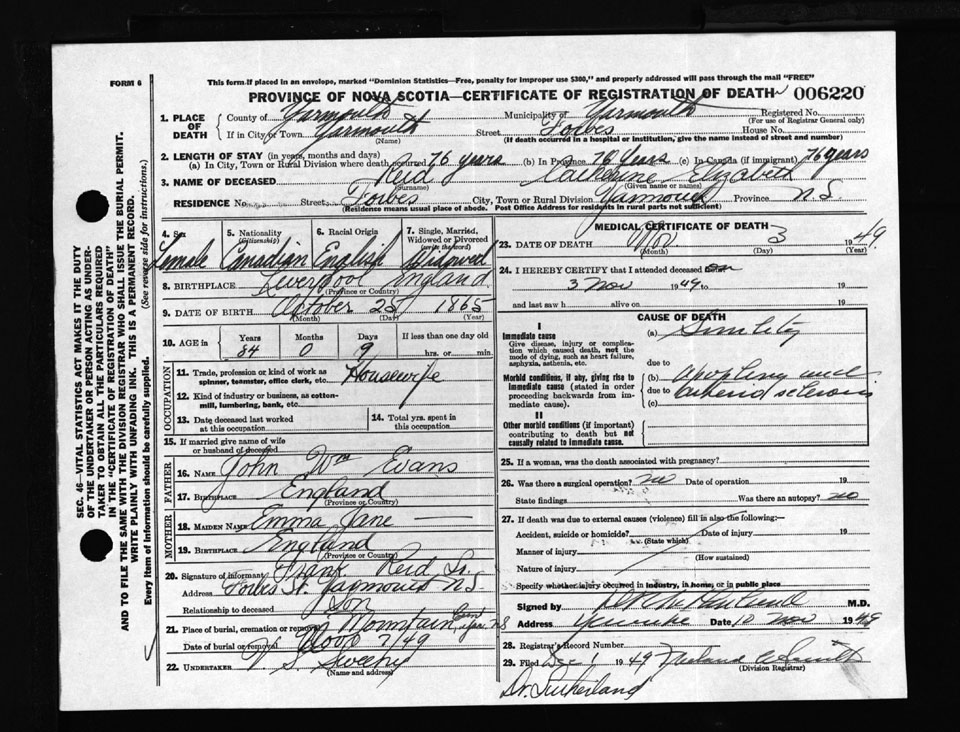 FORM 6
This form if placed in an envelope, marked "Dominion Statistics—Free, penalty for improper use $300," and properly addressed will pass through the mail "FREE"
PROVINCE OF NOVA SCOTIA—CERTIFICATE OF REGISTRATION OF DEATH 006220
1. PLACE OF DEATH
County of Yarmouth Municipality of Yarmouth Registered No.
(For use of Registrar General only)
If in City or Town Yarmouth Street Forbes House No.
(Name) (If death occurred in a hospital or institution, give the name instead of street and number)
2. LENGTH OF STAY (in years, months and days)
(a) In City, Town or Rural Division where death occurred 76 years (b) In Province 76 years (c) In Canada (if immigrant) 76 years
3. NAME OF DECEASED Reid Catherine Elizabeth
(Surname) (Given name or names)
RESIDENCE No. Street Forbes City, Town or Rural Division Yarmouth Province N.S.
(Residence means usual place of abode. Post Office Address for residents in rural parts not sufficient)
4. Sex 5. Nationality (Citizenship) 6. Racial Origin 7. Single, Married, Widowed or Divorced (write the word)
Female Canadian English Widowed
8. BIRTHPLACE Liverpool England
(Province or Country)
9. DATE OF BIRTH October 25 1865
(Month) (Day) (Year)
10. AGE in Years Months Days If less than one day old
84 0 9 hrs. or min.
OCCUPATION
11. Trade, profession or kind of work as spinner, teamster, office clerk, etc. Housewife
12. Kind of industry or business, as cotton-mill, lumbering, bank, etc.
13. Date deceased last worked at this occupation
14. Total yrs. spent in this occupation
15. If married give name of wife or husband of deceased
FATHER
16. NAME John Wm Evans
17. BIRTHPLACE England
(Province or Country)
MOTHER
18. MAIDEN NAME Emma Jane —
19. BIRTHPLACE England
(Province or Country)
20. Signature of informant Frank Reid Sr.
Address Forbes St. Yarmouth N.S.
Relationship to deceased Son
21. Place of burial, cremation or removal Mountain
Date of burial or removal Nov 7/49
22. UNDERTAKER V. S. Sweeny
(Name and address)
MEDICAL CERTIFICATE OF DEATH
23. DATE OF DEATH Nov 3 1949
(Month) (Day) (Year)
24. I HEREBY CERTIFY that I attended deceased
3 Nov 1949 to 19
and last saw h alive on 19
CAUSE OF DEATH
I
Immediate cause (a) Senility
Give disease, injury or complication which caused death, not the mode of dying, such as heart failure, asphyxia, asthenia, etc.
due to
Morbid conditions, if any, giving rise to immediate cause (stated in order proceeding backwards from immediate cause).
(b)
due to
(c)
II
Other morbid conditions (if important) contributing to death but not causally related to immediate cause.
25. If a woman, was the death associated with pregnancy?
26. Was there a surgical operation? no Date of operation 19
State findings Was there an autopsy? no
27. If death was due to external causes (violence) fill in also the following:—
Accident, suicide or homicide? Date of injury 19
(State which)
Manner of injury
(How sustained)
Nature of injury
Specify whether injury occurred in industry, in home, or in public place
Signed by M.D.
Address Date 12 Nov 1949
28. Registrar's Record Number
29. Filed Dec 1 1949
(Division Registrar)
Dr. Sutherland
SEC. 46—VITAL STATISTICS ACT MAKES IT THE DUTY
OF THE UNDERTAKER OR PERSON ACTING AS UNDER-
TAKER TO OBTAIN ALL THE PARTICULARS REQUIRED
IN THE "CERTIFICATE OF REGISTRATION OF DEATH"
AND TO FILE THE SAME WITH THE DIVISION REGISTRAR WHO SHALL ISSUE THE BURIAL PERMIT.
WRITE PLAINLY WITH UNFADING INK. THIS IS A PERMANENT RECORD.
Every item of information should be carefully supplied. (See reverse side for instructions.)